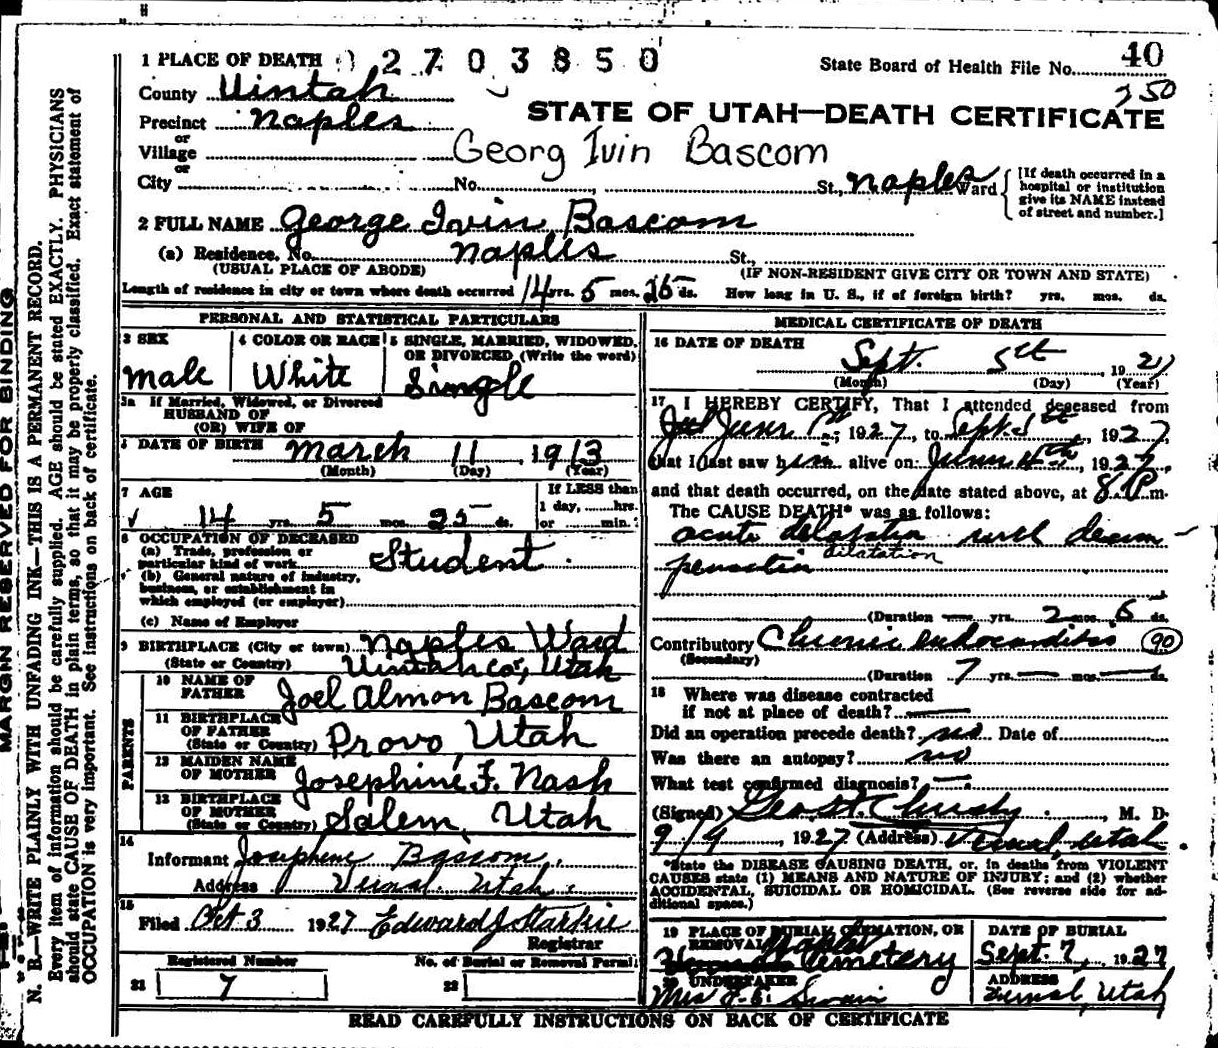 1 PLACE OF DEATH 2703850
State Board of Health File No. 40
250
County Uintah
STATE OF UTAH—DEATH CERTIFICATE
Precinct Naples
or
Village
Georg Ivin Bascom
or
City No. St., Naples Ward
[If death occurred in a hospital or institution give its NAME instead of street and number.]
2 FULL NAME George Ivin Bascom
(a) Residence. No. Naples St.,
(USUAL PLACE OF ABODE) (IF NON-RESIDENT GIVE CITY OR TOWN AND STATE)
Length of residence in city or town where death occurred 14 yrs. 5 mos. 25 ds. How long in U. S., if of foreign birth? yrs. mos. ds.
PERSONAL AND STATISTICAL PARTICULARS
3 SEX
Male
4 COLOR OR RACE
White
5 SINGLE, MARRIED, WIDOWED, OR DIVORCED (Write the word)
Single
5a If Married, Widowed, or Divorced
HUSBAND OF
(OR) WIFE OF
DATE OF BIRTH March 11 1913
(Month) (Day) (Year)
7 AGE
14 yrs. 5 mos. 25 ds.
If LESS than
1 day, hrs.
or min.?
8 OCCUPATION OF DECEASED
(a) Trade, profession or
particular kind of work Student
(b) General nature of industry,
business, or establishment in
which employed (or employer)
(c) Name of Employer
9 BIRTHPLACE (City or town) Naples Ward
(State or Country) Uintah Co, Utah
PARENTS
10 NAME OF
FATHER Joel Almon Bascom
11 BIRTHPLACE
OF FATHER
(State or Country) Provo, Utah
12 MAIDEN NAME
OF MOTHER Josephine F. Nash
13 BIRTHPLACE
OF MOTHER
(State or Country) Salem, Utah
14
Informant Josephine Bascom
Address Vernal Utah
15
Filed Oct 3 1927 Edward J
Registrar
Registered Number No. of Burial or Removal Permit
21 7 22
MEDICAL CERTIFICATE OF DEATH
16 DATE OF DEATH
Sept. 5th, 1927
(Month) (Day) (Year)
17 I HEREBY CERTIFY, That I attended deceased from
June 1st, 1927, to Sept. 1927,
that I last saw him alive on June 1927,
and that death occurred, on the date stated above, at 8 P.m.
The CAUSE DEATH* was as follows:
acute dilatation with decom-
dilatation
pensation
(Duration yrs. 2 mos. 6 ds.
Contributory Chronic endocarditis 90
(Secondary)
(Duration 7 yrs. mos. ds.
18 Where was disease contracted
if not at place of death?
Did an operation precede death? no Date of
Was there an autopsy? no
What test confirmed diagnosis?
(Signed) Geo. H. Christy, M. D.
9/9, 1927 (Address) Vernal, Utah.
*State the DISEASE CAUSING DEATH, or, in deaths from VIOLENT
CAUSES state (1) MEANS AND NATURE OF INJURY; and (2) whether
ACCIDENTAL, SUICIDAL OR HOMICIDAL. (See reverse side for ad-
ditional space.)
19 PLACE OF BURIAL, CREMATION, OR
REMOVAL Naples
Cemetery
DATE OF BURIAL
Sept. 7, 1927
20 UNDERTAKER
Mrs J. E. Swain
ADDRESS
Vernal, Utah
READ CAREFULLY INSTRUCTIONS ON BACK OF CERTIFICATE
MARGIN RESERVED FOR BINDING
N. B.—WRITE PLAINLY WITH UNFADING INK—THIS IS A PERMANENT RECORD.
Every item of information should be carefully supplied. AGE should be stated EXACTLY. PHYSICIANS
should state CAUSE OF DEATH in plain terms, so that it may be properly classified. Exact statement of
OCCUPATION is very important. See instructions on back of certificate.